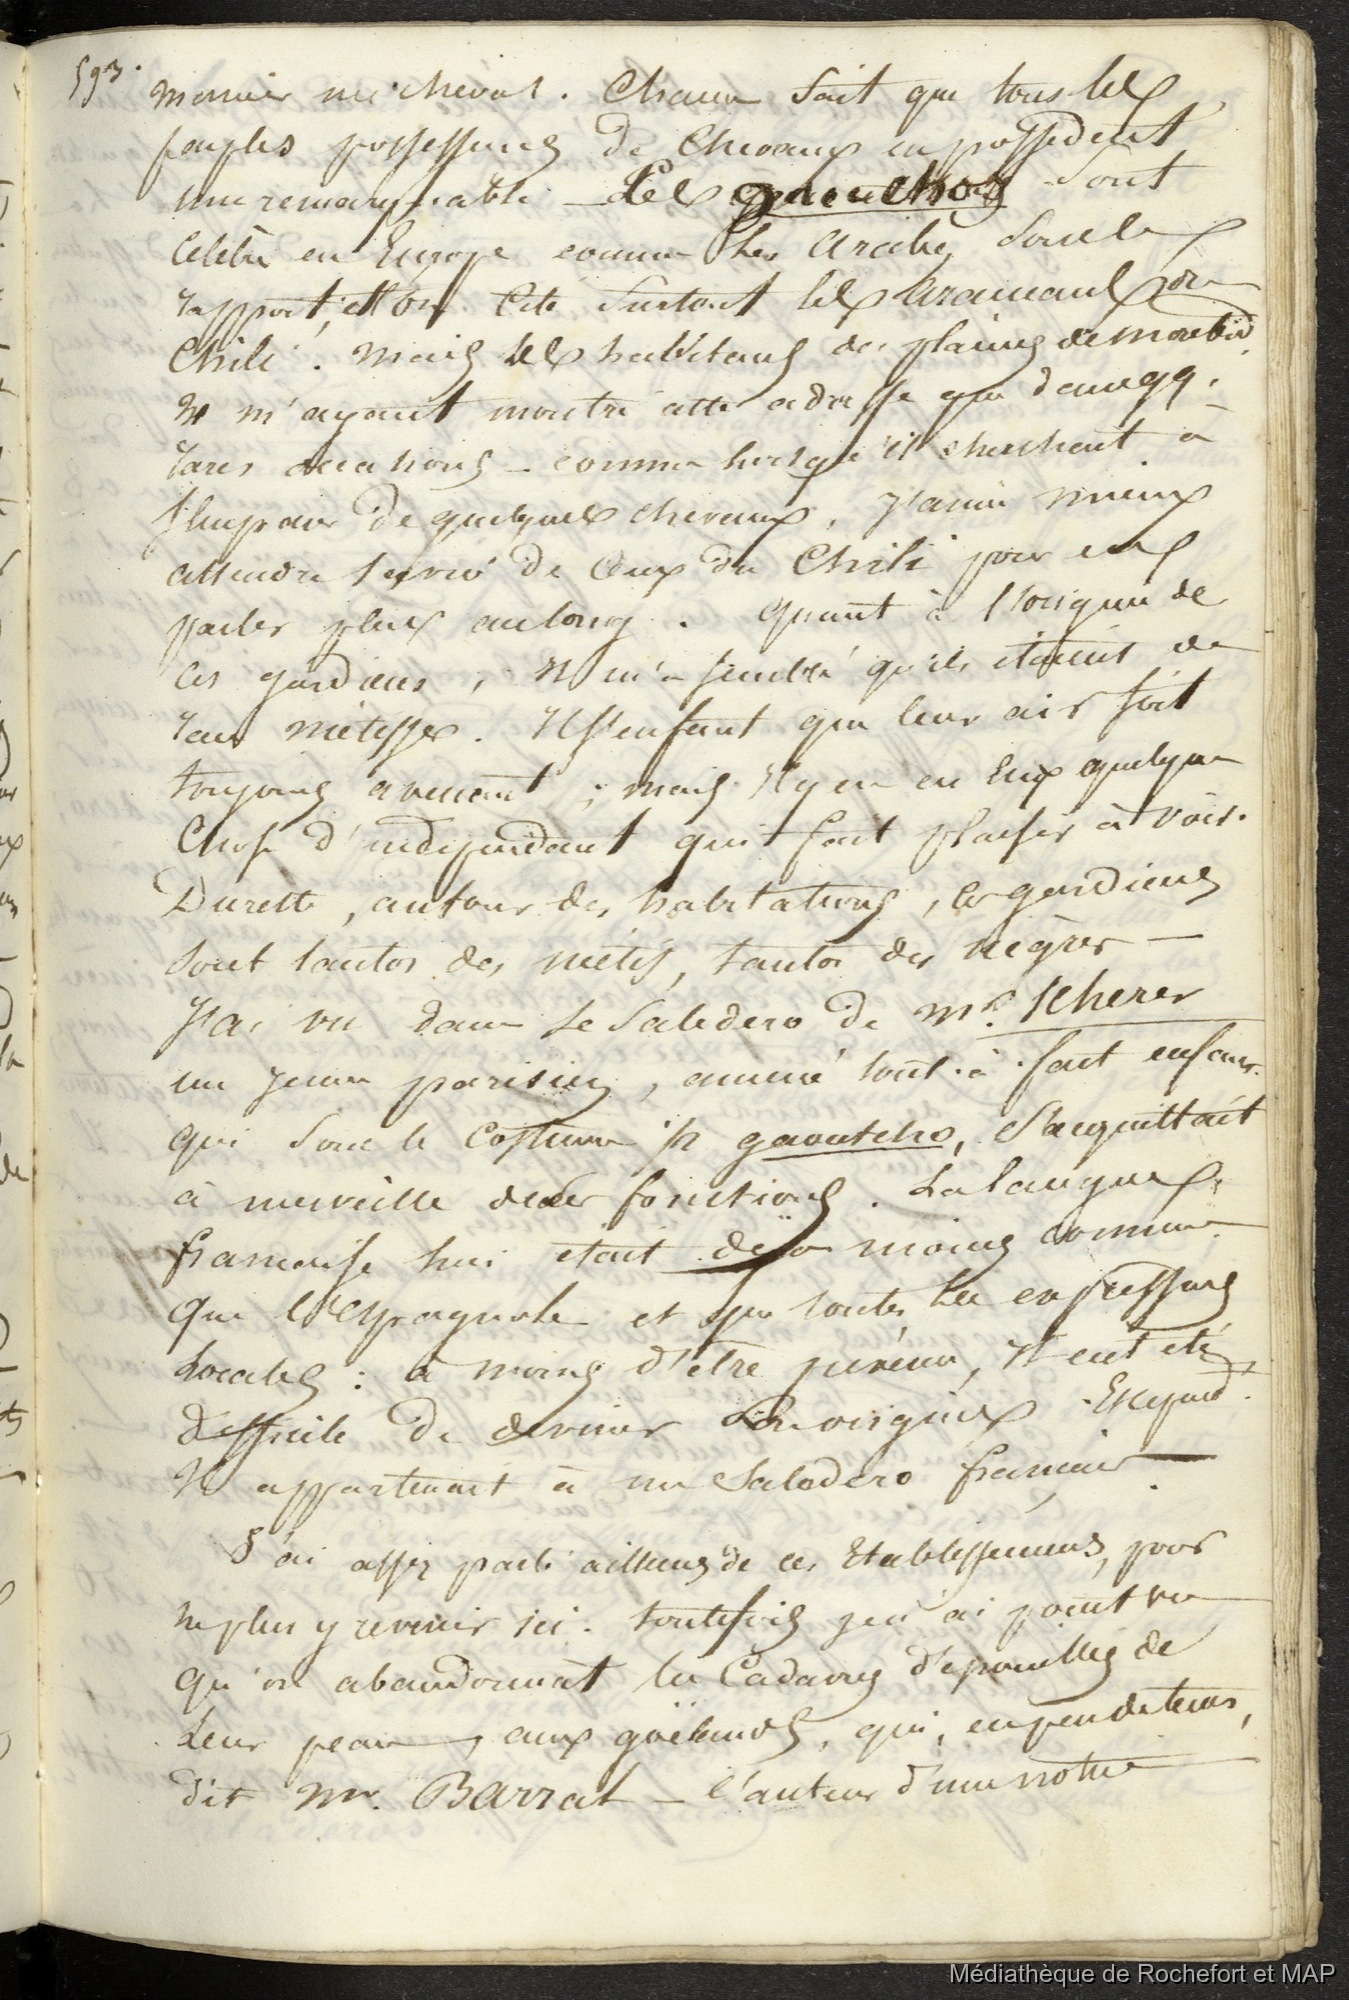 593.
monier ni cheval. Chacun sait que tous les
peuples possesseurs de chevaux en possedent
une remarquable – Les gaoutchos sont
célèbre en Europe comme les Arabes sous le
rapport, et on cite surtout les araucans du
Chili. mais les habitans des plaines de montevid.
ne m'ayant montré cette adresse que dans qq.
rares occasions – comme lorsqu'il cherchent à
s'emparer de quelques chevaux, J'aime mieux
attendre d'avoir vu ceux du Chili pour en
parler plus au long. Quant à l'origine de
ces gardiens, Il m'a semblé qu'ils étaient de
race métisse. Il s'en faut que leur air soit
toujours avenant; mais Il y a en Eux quelque
chose d'indépendant qui fait plaisir à voir.
Du reste, autour des habitations, ces gardiens
sont tantot des métis, tantot des nègres —
J'ai vu dans le Saledero de Mr. Kherer
un jeune parisien, amené tout-à-fait enfant.
qui sous le costume de gaoutcho, s'acquittait
à merveille de ses fonctions. La langue
francaise lui était déjà moins connue
que l'espagnole et que toutes les expressions
locales: à moins d'etre prévenu, Il eut été
difficile de deviner son origine
Il appartenait à un Saladero français.
J'ai assez parlé ailleurs de ces Etablissemens, pour
ne plus y revenir ici. toutefois je n'ai point vu
qu'on abandonnat les Cadavres dépouillés de
leur peau, aux goëlands, qui, en peu de tems,
dit Mr. Barral – l'auteur d'une notice
Médiathèque de Rochefort et MAP